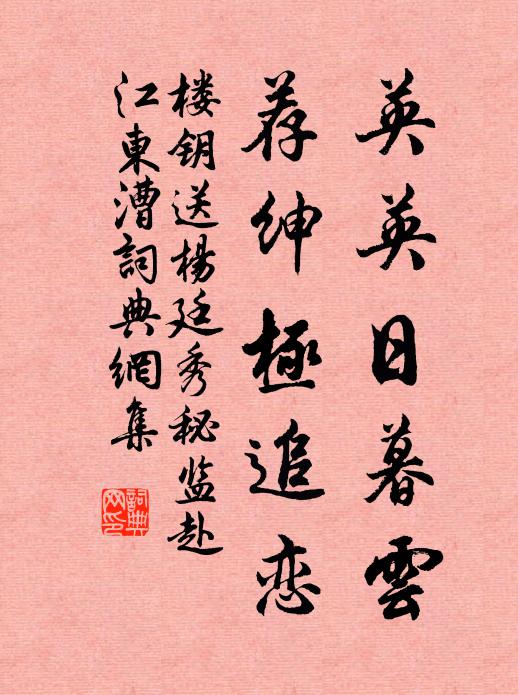 英英日暮雲
荐紳極追恋
楼钥送楊廷秀秘监赴
江東漕詞典網集
詞典網印